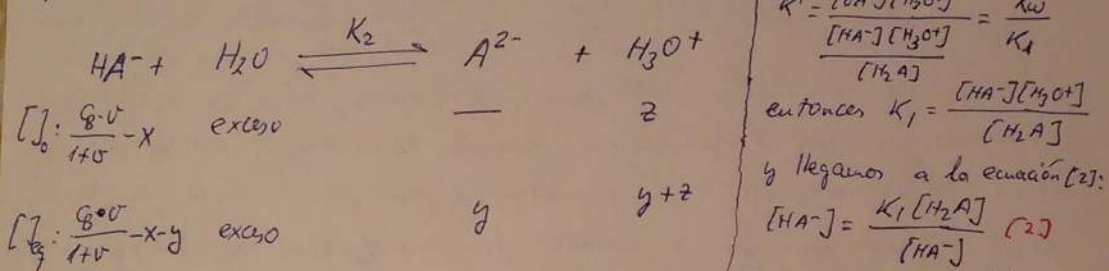 HA⁻ + H₂O ⇌ A²⁻ + H₃O⁺
K₂
[ ]₀: C_B·V/1+V - x exceso — z
[ ]eq: C_B·V/1+V - x - y exceso y y+z
K' = [OH⁻][H₃O⁺] / [HA⁻][H₃O⁺]/[H₂A] = Kω/K₁
entonces K₁ = [HA⁻][H₃O⁺]/[H₂A]
y llegamos a la ecuación [2]:
[HA⁻] = K₁[H₂A]/[HA⁻] [2]